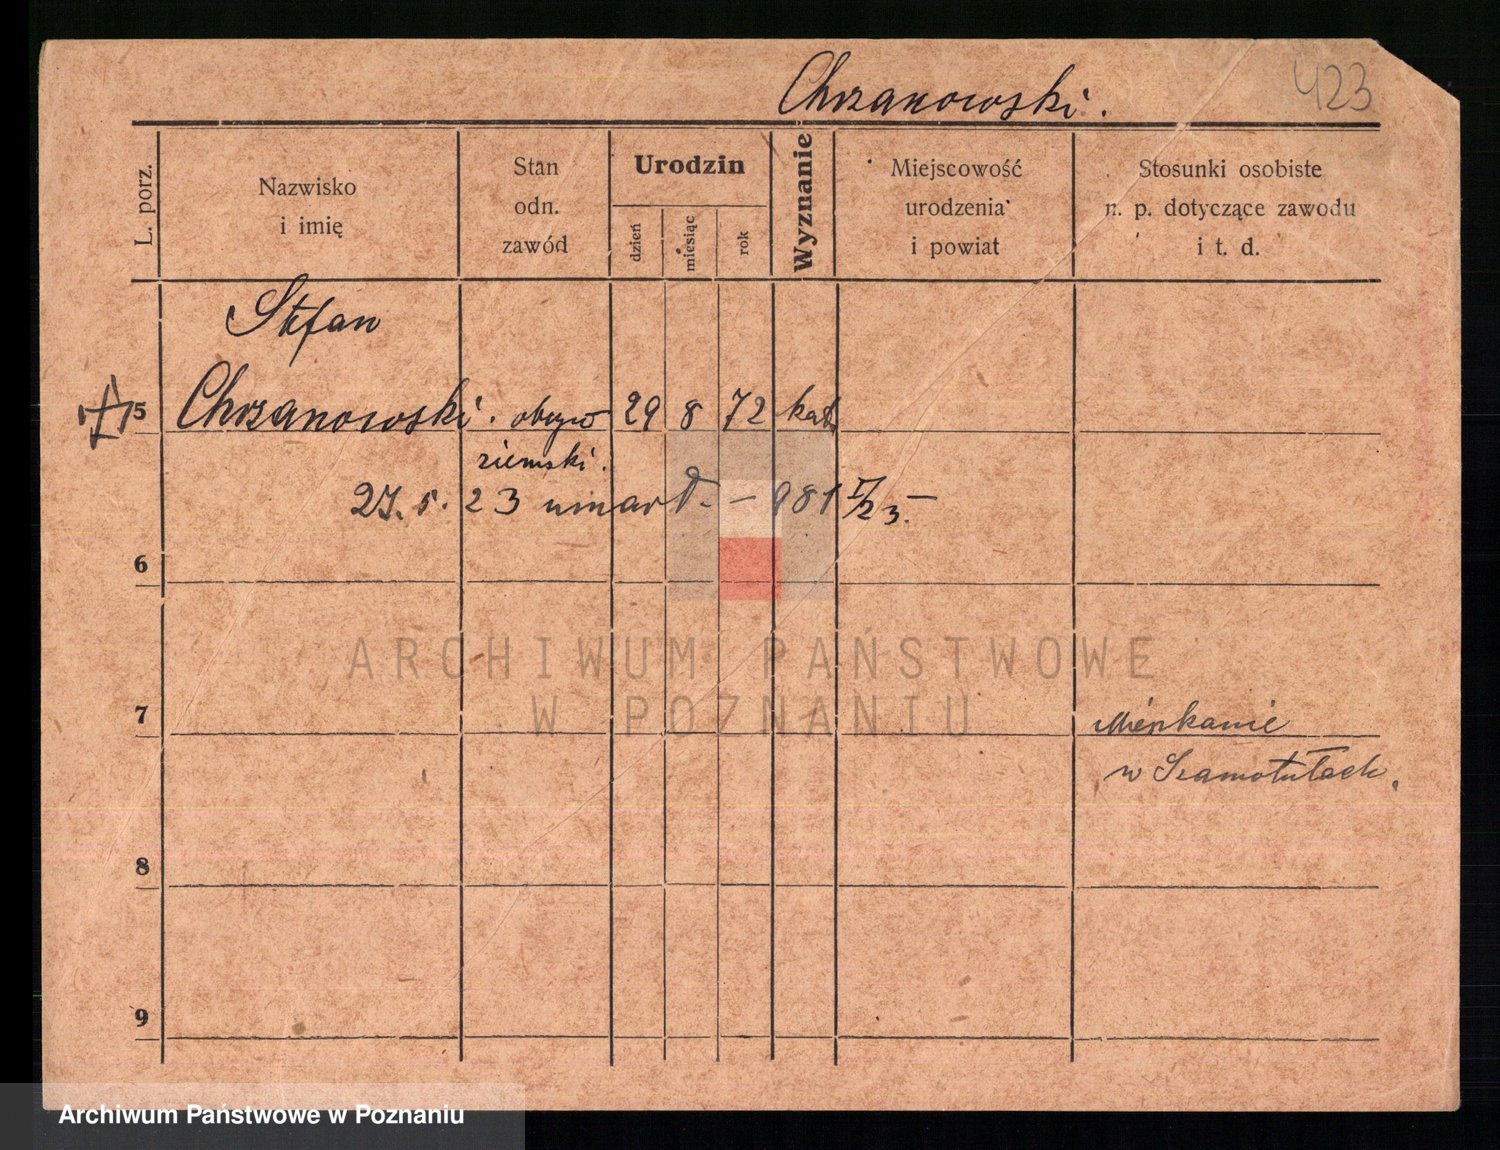 Chrzanowski.
423
L. porz.
Nazwisko
i imię
Stan
odn.
zawód
Urodzin
dzień
miesiąc
rok
Wyznanie
Miejscowość
urodzenia
i powiat
Stosunki osobiste
n. p. dotyczące zawodu
i t. d.
Stefan
5 Chrzanowski. obyw 29 8 72 kat.
ziemski.
27. 5. 23 umarł. — 981 I/23. —
6
ARCHIWUM PAŃSTWOWE
W POZNANIU
7 Mieszkanie
w Szamotułach.
8
9
Archiwum Państwowe w Poznaniu